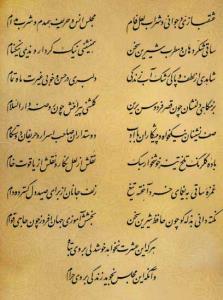 عشقبازی و جوانی و شراب لعل فام مجلس انس و حریف همدم و شرب مدام
ساقی شکردهان و مطرب شیرین سخن همنشینی نیک کردار و ندیمی نیکنام
شاهدی از لطف و پاکی رشک آب زندگی دلبری در حسن و خوبی غیرت ماه تمام
بزمگاهی دلنشان چون قصر فردوس برین گلشنی پیرامنش چون روضه دارالسلام
صف نشینان نیکخواه و پیشکاران با ادب دوستداران صاحب اسرار و حریفان دوستکام
باده گلرنگ تلخ تیز خوشخوار سبک نقلش از لعل نگار و نقلش از یاقوت خام
غمزه ساقی به یغمای خرد آهخته تیغ زلف جانان از برای صید دل گسترده دام
نکته دانی بذله گو چون حافظ شیرین سخن بخشش آموزی جهان افروز چون حاجی قوام
هر که این عشرت نخواهد خوشدلی بر وی تباه
وانکه این مجلس نجوید زندگی بر وی حرام